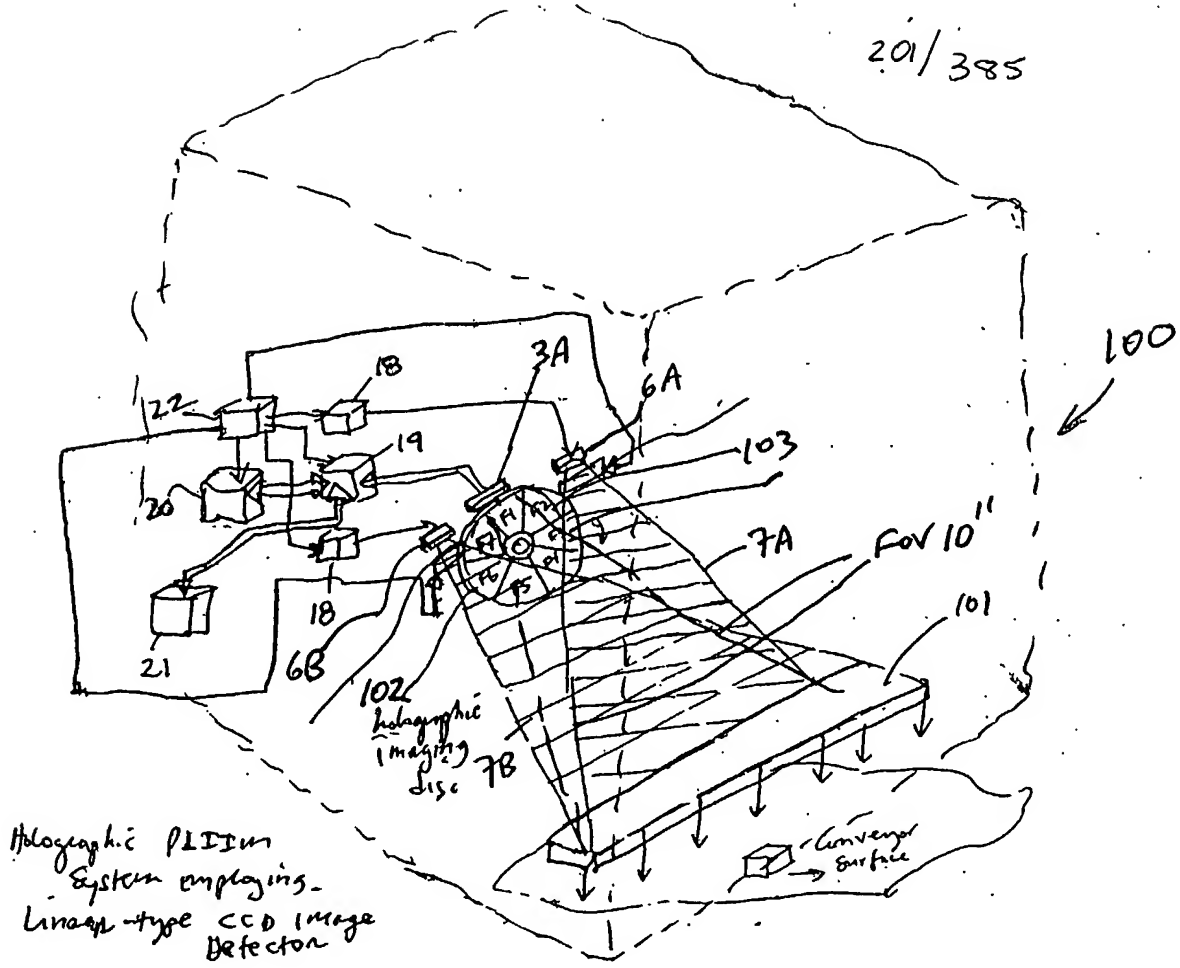 201/385
100
3A
18
6A
22
19
103
20
F1
F2
F3
F4
F5
F6
F7
7A
FOV 10"
101
18
21
6B
102
holographic
imaging
disc
7B
Conveyor
Surface
Holographic PLIIM
System employing
Linear-type CCD Image
Detector